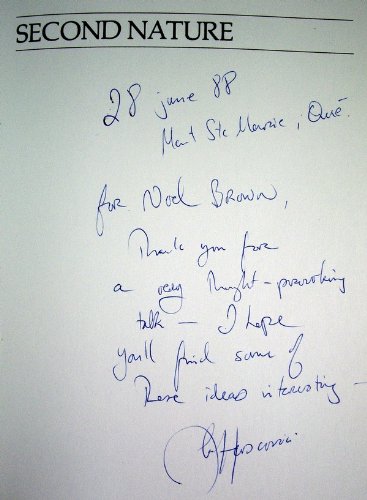 SECOND NATURE
28 june 88
Mont Ste Marie, Qué.
for Noel BROWN,
Thank you for
a very thought-provoking
talk — I hope
you'll find some of
these ideas interesting —